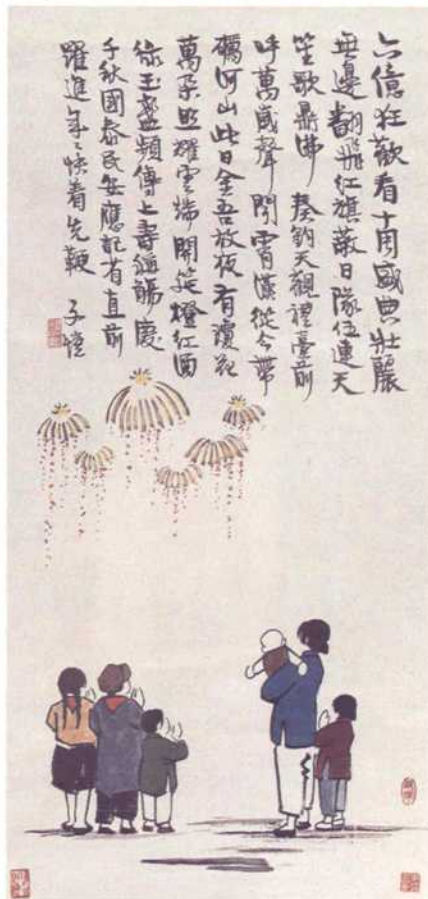 六億狂歡看十周盛典壯麗
無邊翻飛紅旗蔽日隊伍連天
笙歌鼎沸 奏鈞天觀禮臺前
呼萬歲聲聞霄漢從今帶
礪河山此日金吾放夜有瓊花
萬朵照耀雲端開筵橙紅酒
綠玉盞頻傳上壽稱觴慶
千秋國泰民安應記省直前
躍進年〻快着先鞭 子愷